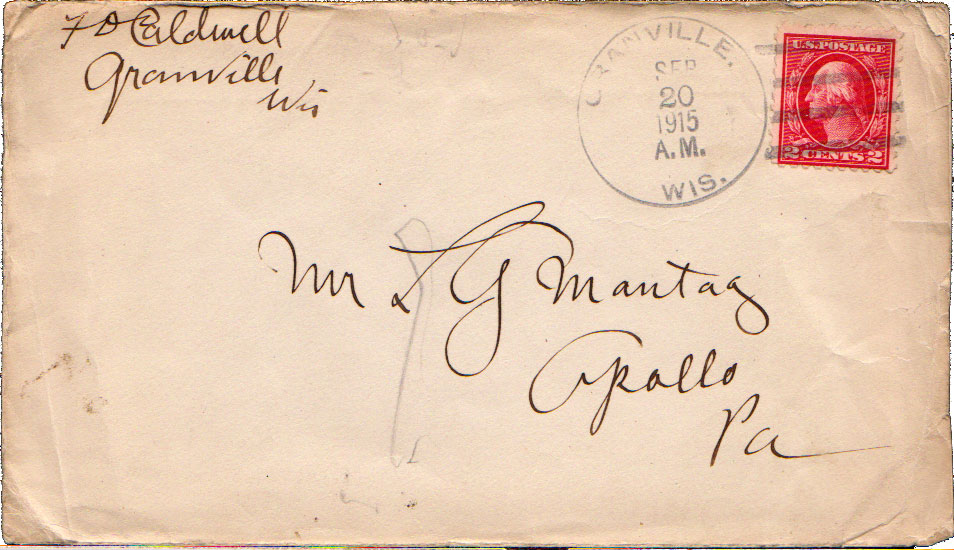 F D Caldwell
Granville,
Wis
GRANVILLE.
SEP
20
1915
A.M.
WIS.
U.S. POSTAGE
2 CENTS 2
Mr L G Mantag
Apollo
Pa